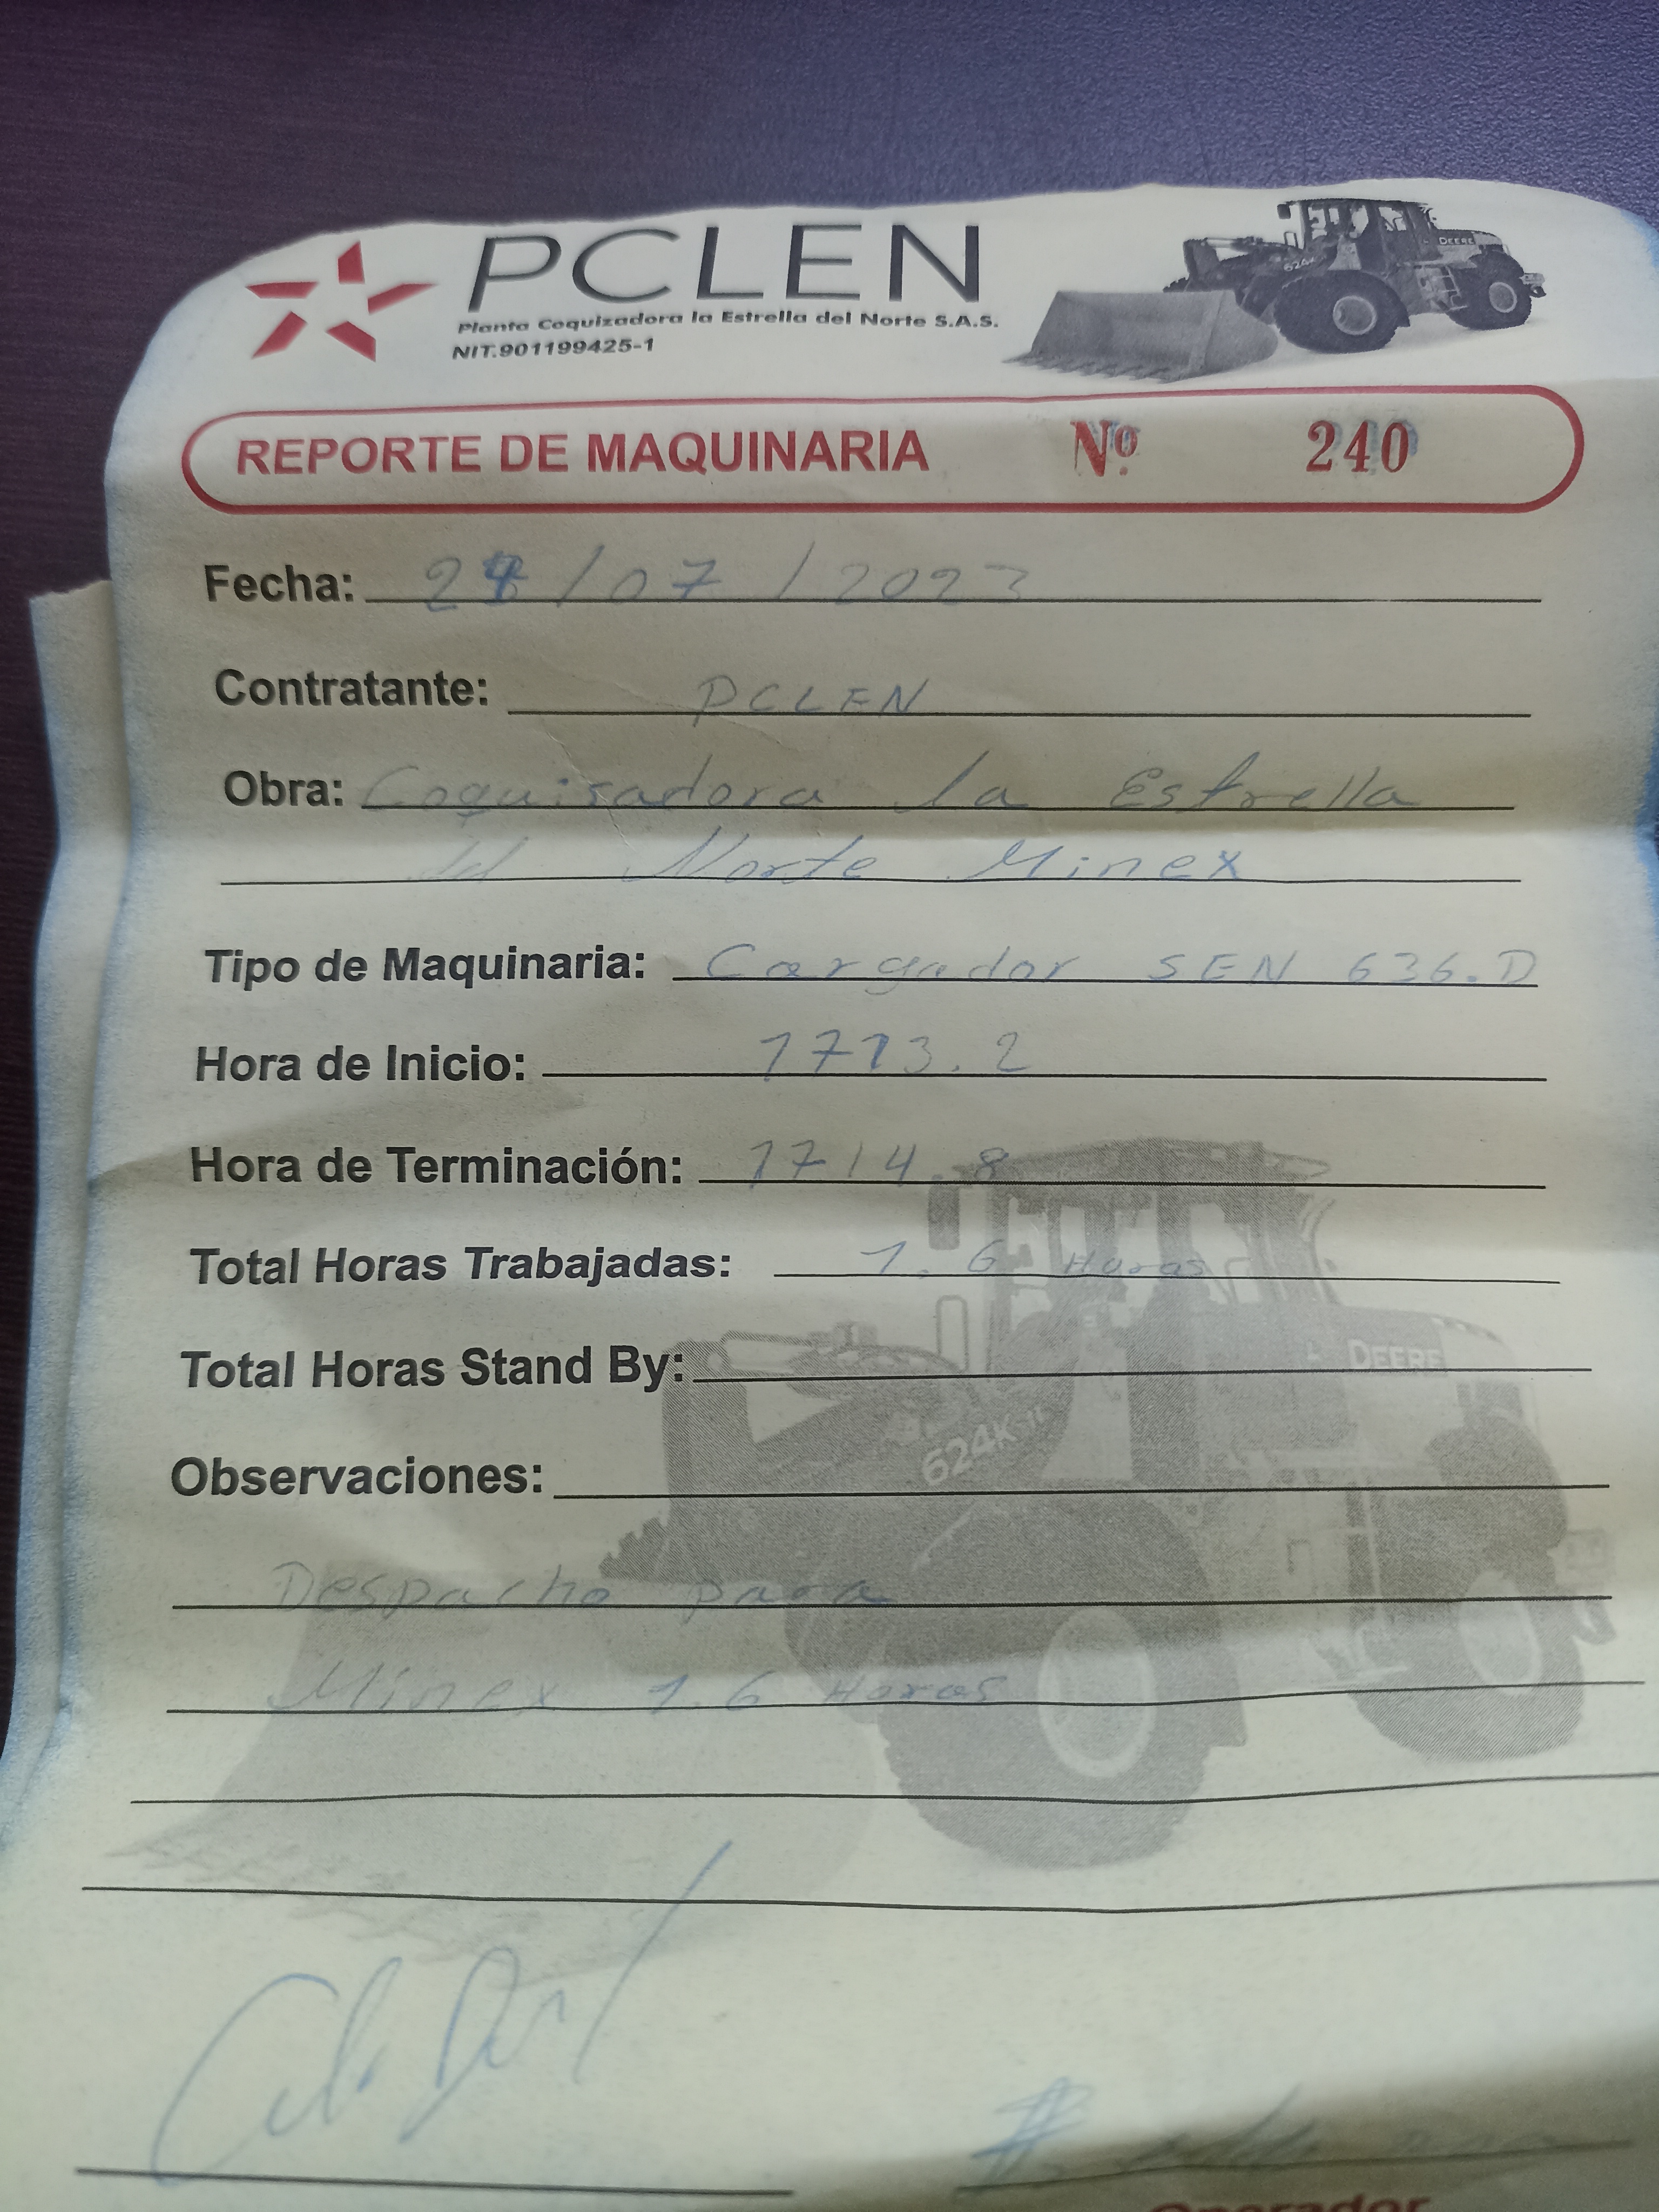 PCLEN
Planta Coquizadora la Estrella del Norte S.A.S.
NIT.901199425-1
REPORTE DE MAQUINARIA Nº 240
Fecha: /07/2023
Contratante: PCLEN
Obra: Coquisadora la Estrella
del Norte Minex
Tipo de Maquinaria: Cargador SEN 636.D
Hora de Inicio: 1713.2
Hora de Terminación: 1714.8
Total Horas Trabajadas: 1.6 Horas
Total Horas Stand By:
DEERE
624K
Observaciones:
Despacho para
Minex 1.6 Horas
Operador